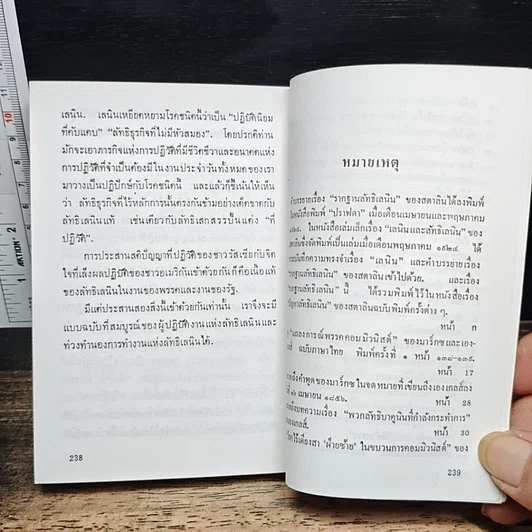 เลนิน. เลนินเหยียดหยามโรคชนิดนี้ว่าเป็น "ปฏิบัตินิยม
ที่คับแคบ" "ลัทธิธุรกิจที่ไม่มีหัวสมอง". โดยปรกติท่าน
มักจะเอาภารกิจแห่งการปฏิวัติที่มีชีวิตชีวาและอนาคตแห่ง
การปฏิวัติที่จำเป็นต้องมีในงานประจำวันทั้งหมดของเรา
มาวางเป็นปฏิปักษ์กับโรคชนิดนี้ และแล้วก็ชี้เน้นให้เห็น
ว่า ลัทธิธุรกิจที่ไร้หลักการนั้นตรงกันข้ามอย่างเด็ดขาดกับ
ลัทธิเลนินแท้ เช่นเดียวกับลัทธิเสกสรรปั้นแต่ง "ที่
ปฏิวัติ".
การประสานสติปัญญาที่ปฏิวัติของชาวรัสเซียกับจิต
ใจที่เล็งผลปฏิบัติของชาวอเมริกันเข้าด้วยกันก็คือเนื้อแท้
ของลัทธิเลนินในงานของพรรคและงานของรัฐ.
มีแต่ประสานสองสิ่งนี้เข้าด้วยกันเท่านั้น เราจึงจะมี
แบบฉบับที่สมบูรณ์ของผู้ปฏิบัติงานแห่งลัทธิเลนินและ
ท่วงทำนองการทำงานแห่งลัทธิเลนินได้.
238
หมายเหตุ
คำบรรยายเรื่อง "รากฐานลัทธิเลนิน" ของสตาลินได้ลงพิมพ์
ในหนังสือพิมพ์ "ปราฟดา" เมื่อเดือนเมษายนและพฤษภาคม
ในหนังสือเล่มเล็กเรื่อง "เลนินและลัทธิเลนิน" ของ
ซึ่งจัดพิมพ์เป็นเล่มเมื่อเดือนพฤษภาคม ๑๙๒๔ ได้
ความทรงจำเรื่อง "เลนิน" และคำบรรยายเรื่อง
"รากฐานลัทธิเลนิน" ของสตาลินเข้าไปด้วย. และเรื่อง
"รากฐานลัทธิเลนิน" นี้ ได้รวมพิมพ์ไว้ในหนังสือเรื่อง
ลัทธิเลนิน" ของสตาลินฉบับพิมพ์ครั้งต่าง ๆ.
หน้า ๓
"แถลงการณ์พรรคคอมมิวนิสต์" ของมาร์กซและเอง-
ฉบับภาษาไทย พิมพ์ครั้งที่ ๑ หน้า ๑๓๘-๑๓๙.
หน้า 17
คำพูดของมาร์กซ ในจดหมายที่เขียนถึงเองเกลส์ลง
๑๖ เมษายน ๑๘๕๖.
หน้า 28
บทความเรื่อง "พวกลัทธิบาคูนินที่กำลังกระทำการ"
หน้า 30
ไร้เดียงสา 'ฝ่ายซ้าย' ในขบวนการคอมมิวนิสต์" ของ
239
10
9
2
1
ACTION